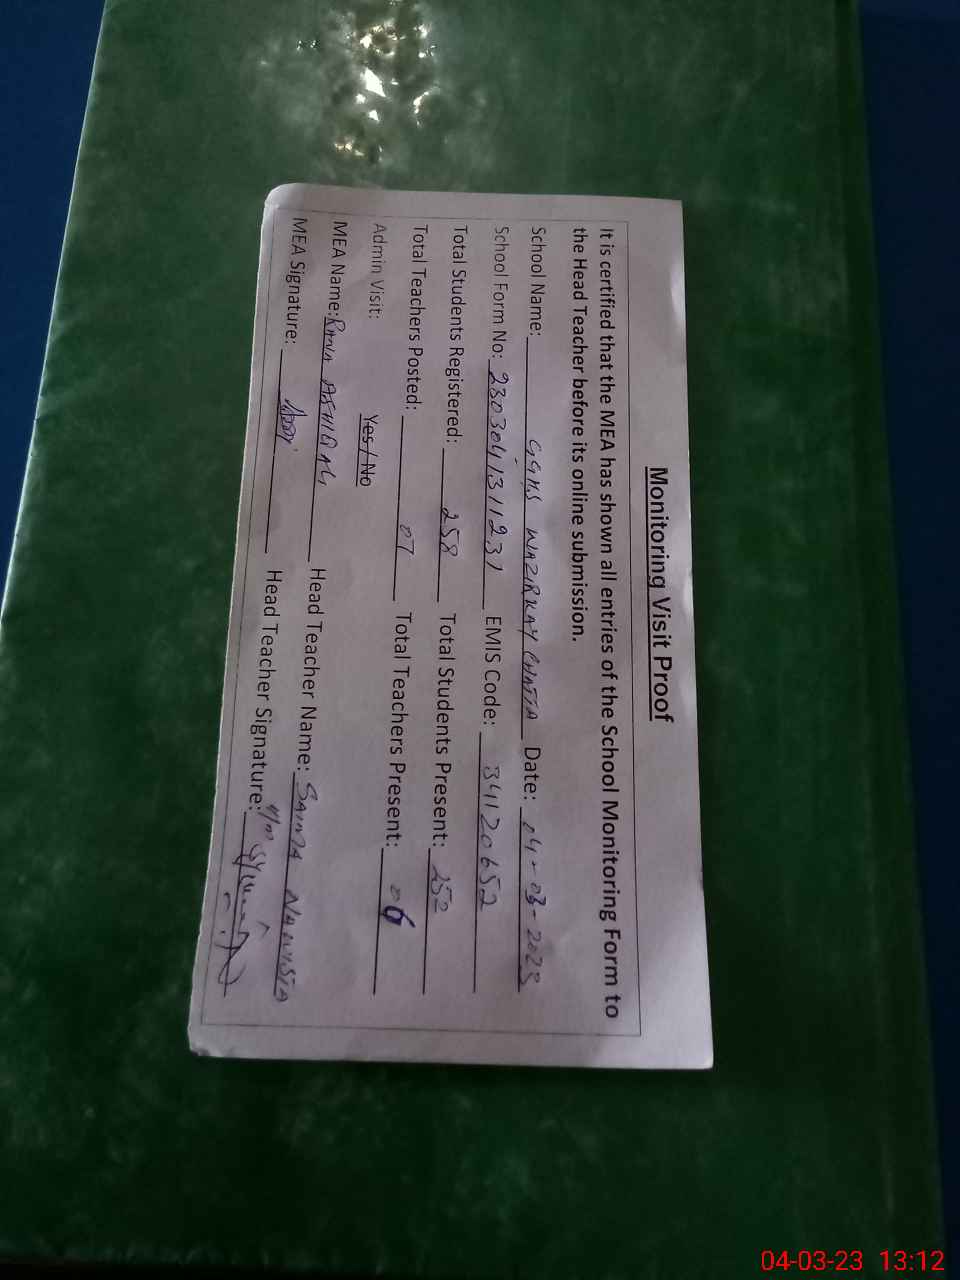 Monitoring Visit Proof
It is certified that the MEA has shown all entries of the School Monitoring Form to
the Head Teacher before its online submission.
School Name: GGHS WAZIRKAY CHATTA Date: 04-03-2023
School Form No: 2303041311231 EMIS Code: 34120652
Total Students Registered: 258 Total Students Present: 252
Total Teachers Posted: 07 Total Teachers Present: 06
Admin Visit: Yes / No
MEA Name: RANA ASHIQ ALI Head Teacher Name: SAIMA
MEA Signature: Head Teacher Signature:
04-03-23 13:12